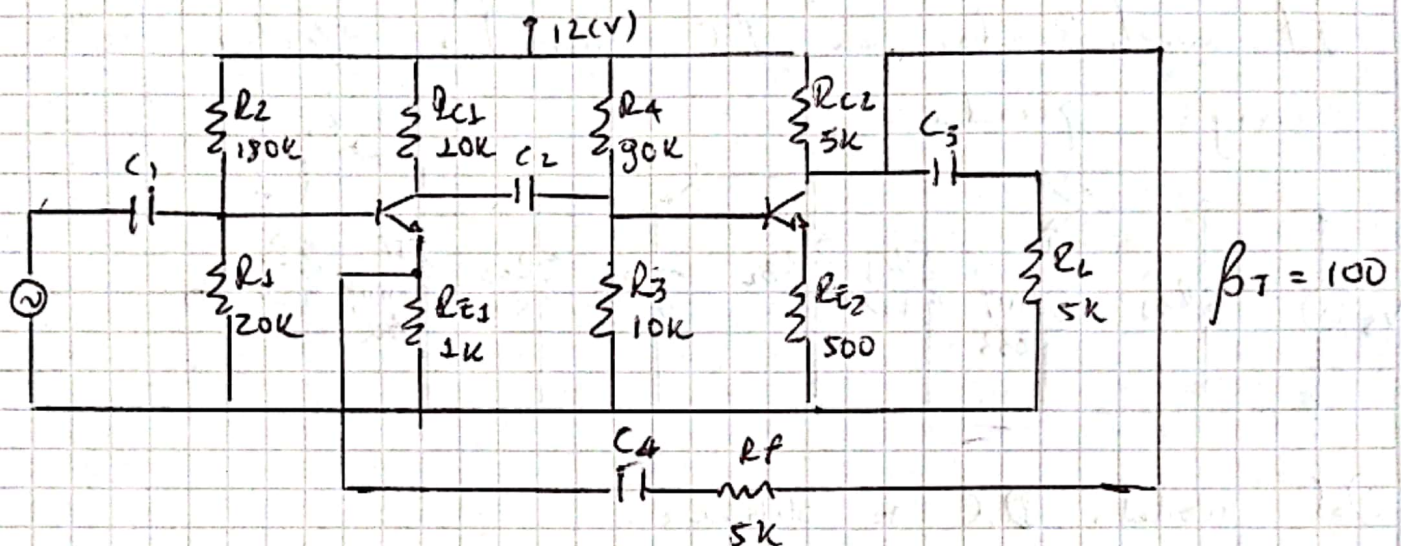 12(V)
R2
180K
RC1
10K
R4
90K
RC2
5K
C1
C2
C3
R1
20K
RE1
1K
R3
10K
RE2
500
RL
5K
βT = 100
C4
Rf
5K